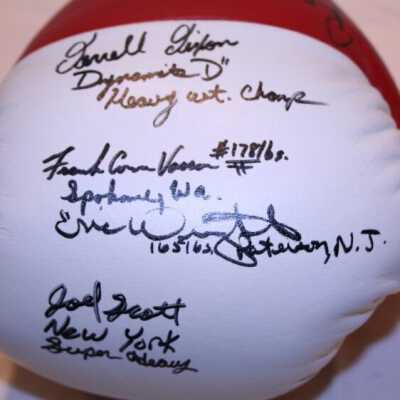 Terrell Dixon
Dynamite D"
Heavy wt. Champ
Frank Vassar #178lbs.
Spokane, Wa.
Eric Wright
165lbs, Paterson, N.J.
Joel Scott
New York
Super Heavy